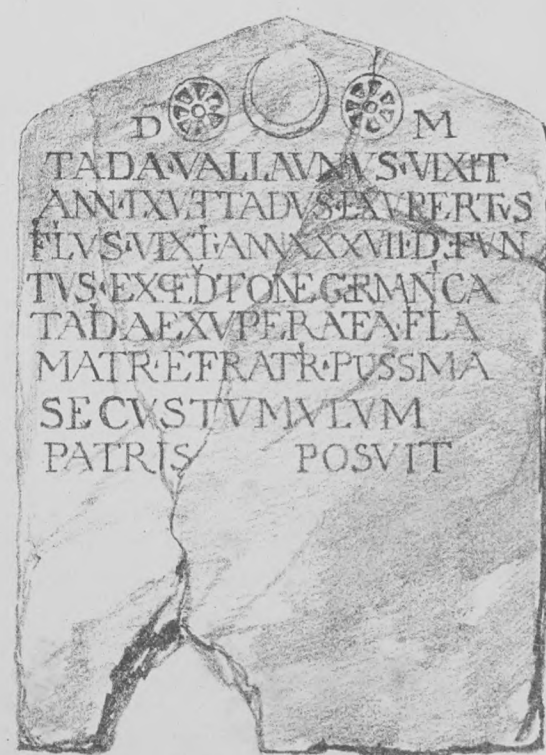 D M
TADA·VALLAVNVS·VIXIT
ANN·LXV·ETTADVS·EXVPERTVS
FLVS·VIXT·ANNXXXVII·DEFVN
TVS·EXPEDTONEGERMANCA
TADAEXVPERATA·FLA
MATR·EFRATR·PIISSMA
SECVS TVMVLVM
PATRIS POSVIT